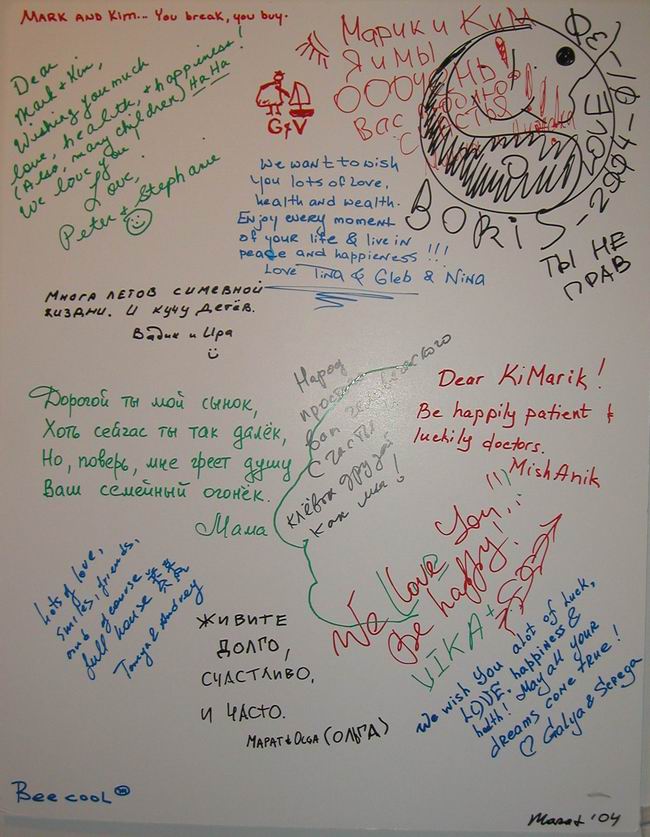 MARK AND KIM... YOU BREAK, YOU BUY.
Dear
Mark + Kim,
Wishing you much
love, health, + happiness!
(Also, many children) HaHa
We love you!
Love,
Peter & Stephanie
G & V
Марик и Ким
Я и МЫ
ОООЧЕНЬ!
Вас
LOVE
BORiS-2004-10
ТЫ НЕ
ПРАВ
We want to wish
you lots of love,
health and wealth.
Enjoy every moment
of your life & live in
peace and happieness !!!
Love Tina & Gleb & Nina
Многа летов симевной
жизни. И кучу детёв.
Вадик и Ира
Народ
вам
Счастья
клёвых друзей
как мы!
Dear KiMarik!
Be happily patient &
luckily doctors.
MishAnik
Дорогой ты мой сынок,
Хоть сейчас ты так далёк,
Но, поверь, мне греет душу
Ваш семейный огонёк.
Мама
We Love You!!!
Be happy!
VIKA +
Lots of love,
smiles, friends,
and of course
full house
Tanya & Andrey
ЖИВИТЕ
ДОЛГО,
СЧАСТЛИВО,
И ЧАСТО.
МАРАТ & OLGA (ОЛЬГА)
We wish you alot of luck,
LOVE, happiness &
health! May all your
dreams come true!
Galya & Serega
Bee cool
Marat '04